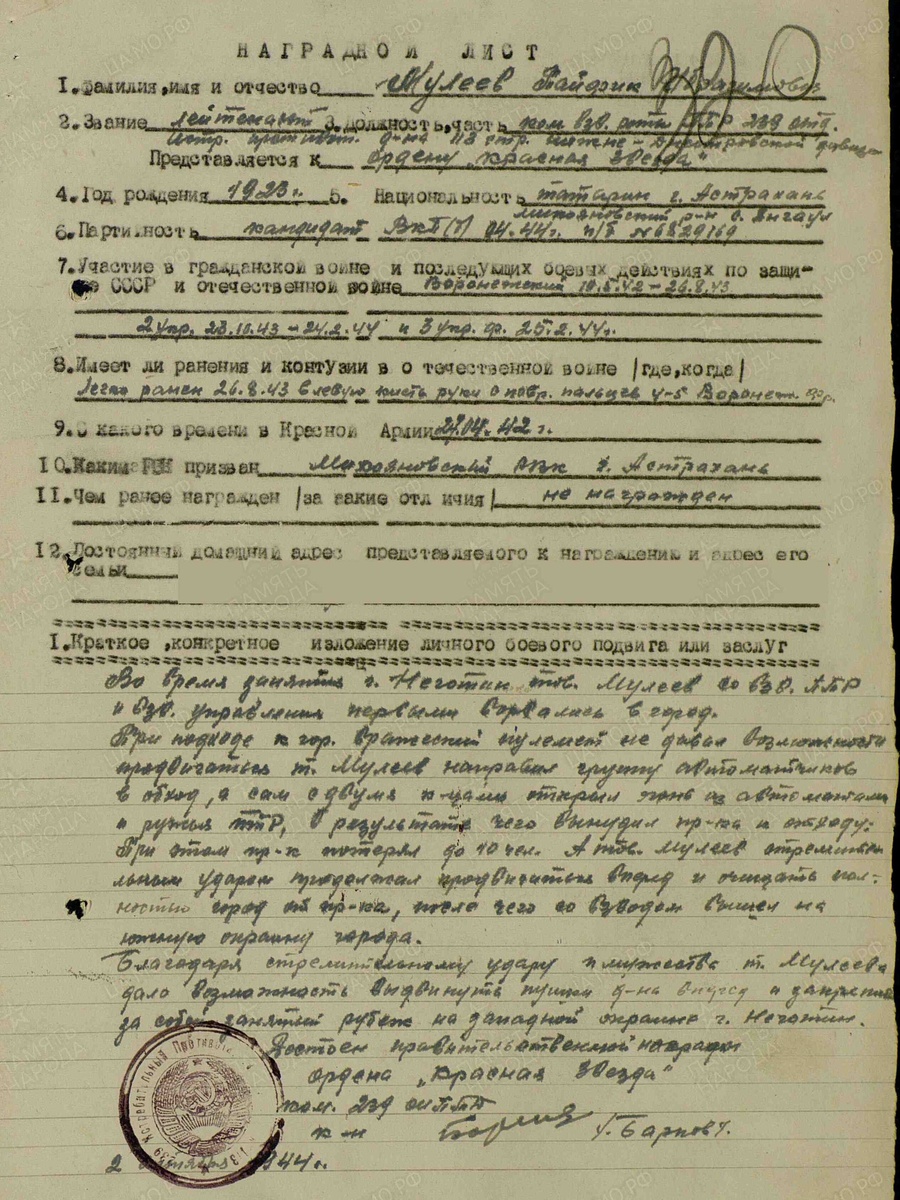 НАГРАДНОЙ ЛИСТ
1. Фамилия, имя и отчество Мулеев
2. Звание лейтенант 3. Должность, часть ком взв. роты ПТР 239 отд.
истр. противот. д-на 113 стр. нижне-днестровской дивиз
Представляется к ордену "Красная Звезда"
4. Год рождения 1923 г. 5. Национальность татарин г. Астрахань
микояновский р-н с. Янгаул
6. Партийность кандидат ВКП(б) 04.44г. п/б №6829169
7. Участие в гражданской войне и последующих боевых действиях по защи-
те СССР и отечественной войне Воронежский 10.5.42-26.8.43
2 укр. 23.10.43-24.2.44 и 3 укр. ф. 25.2.44г.
8. Имеет ли ранения и контузии в отечественной войне /где, когда/
Легко ранен 26.8.43 в левую кисть руки с повр. пальцев 4-5 Воронеж фр.
9. С какого времени в Красной Армии 27.04.42 г.
10. Каким РВК призван Микояновский РВК г. Астрахань
11. Чем ранее награжден /за какие отличия/ не награжден
12. Постоянный домашний адрес представляемого к награждению и адрес его
семьи
1. Краткое, конкретное изложение личного боевого подвига или заслуг
Во время занятия г. Неготин тов. Мулеев со взв. ПТР
и взв. управления первыми ворвались в город.
При подходе к гор. вражеский пулемет не давал возможности
продвигаться т. Мулеев направил группу автоматчиков
в обход, а сам с двумя к-цами открыл огонь из автоматами
и ружья ПТР, в результате чего вынудил пр-ка к отходу.
При этом пр-к потерял до 10 чел. А тов. Мулеев стремите
льным ударом продолжал продвигаться вперед и очищать пол-
ностью город от пр-ка, после чего со взводом вышел на
южную окраину города.
Благодаря стремительному удару и мужества т. Мулеева
дало возможность выдвинуть пушки д-на вперед и закрепить
за собой занятый рубеж на западной окраине г. Неготин.
Достоен правительственной награды
ордена "Красная Звезда"
ком. 239 оиптд
к-н
2 1944 г.